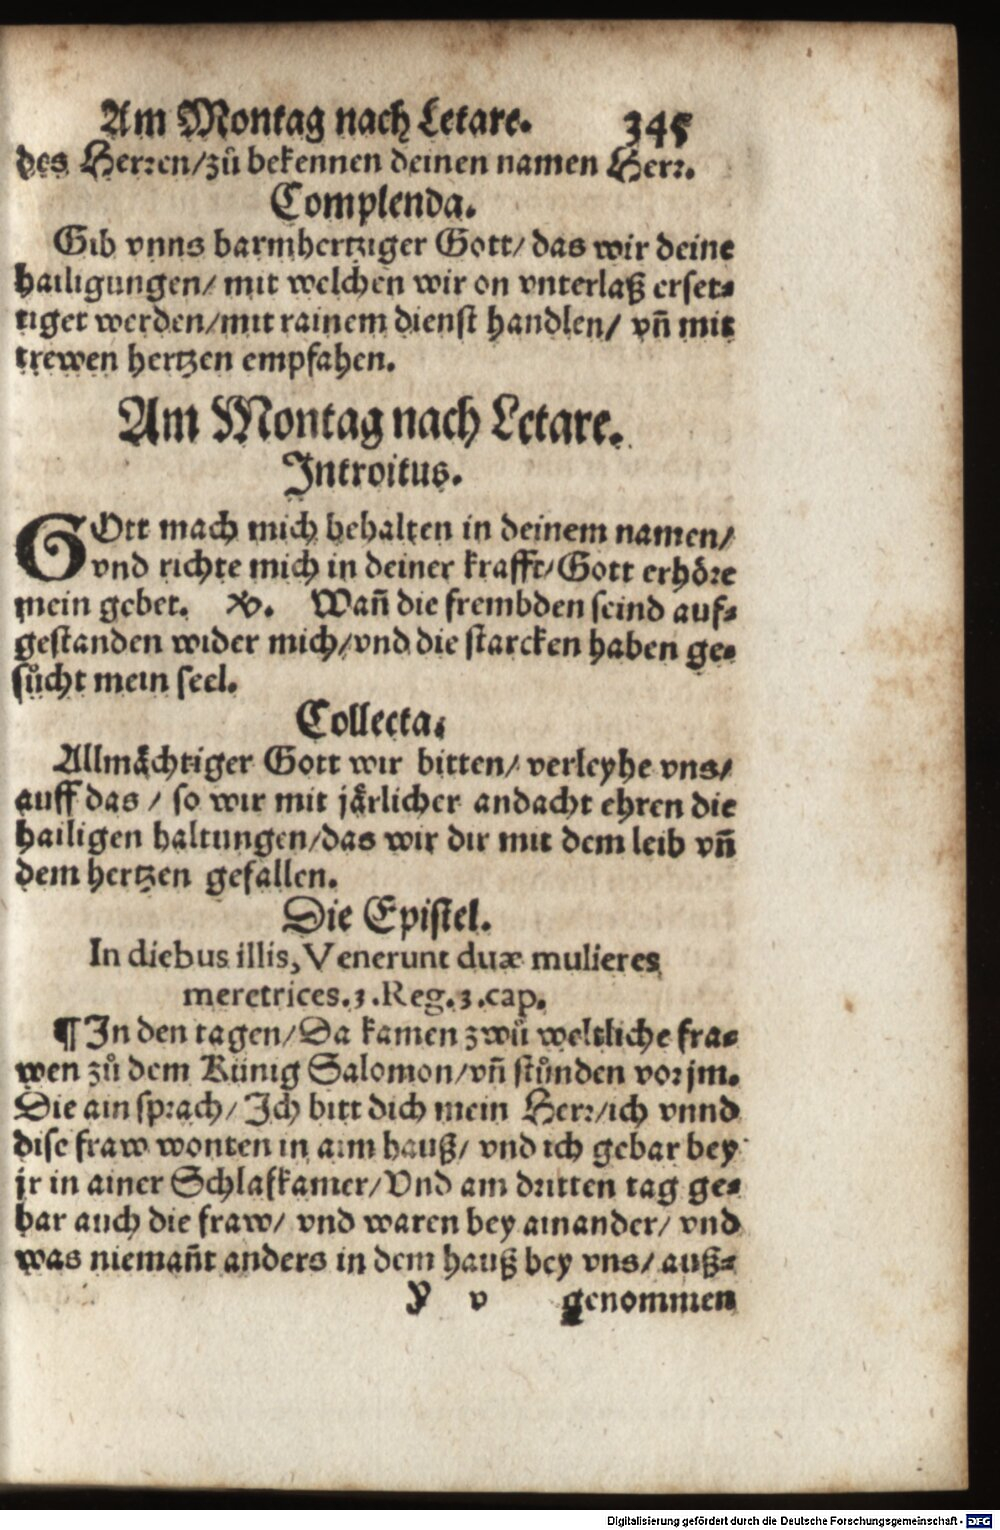 Am Montag nach Letare. 345
des Herren/zů bekennen deinen namen Herr.
Complenda.
Gib vnns barmhertziger Gott/ das wir deine
hailigungen/ mit welchen wir on vnterlaß erset⸗
tiget werden/mit rainem dienst handlen/ vn̄ mit
trewen hertzen empfahen.
Am Montag nach Letare.
Introitus.
GOtt mach mich behalten in deinem namen/
vnd richte mich in deiner krafft/Gott erhöre
mein gebet. ℣. Wan̄ die frembden seind auf⸗
gestanden wider mich/vnd die starcken haben ge⸗
sůcht mein seel.
Collecta.
Allmächtiger Gott wir bitten/ verleyhe vns/
auff das / so wir mit järlicher andacht ehren die
hailigen haltungen/das wir dir mit dem leib vn̄
dem hertzen gefallen.
Die Epistel.
In diebus illis, Venerunt duæ mulieres
meretrices.3.Reg.3.cap.
¶ In den tagen/Da kamen zwů weltliche fra⸗
wen zů dem Künig Salomon/vn̄ stůnden vor jm.
Die ain sprach/ Ich bitt dich mein Herr/ich vnnd
dise fraw wonten in aim hauß/ vnd ich gebar bey
jr in ainer Schlafkamer/Vnd am dritten tag ge⸗
bar auch die fraw/ vnd waren bey ainander/ vnd
was nieman̄t anders in dem hauß bey vns/ auß⸗
Y v genommen
Digitalisierung gefördert durch die Deutsche Forschungsgemeinschaft - DFG